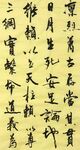 烈万古存當其貫
日月生死安足論地
維賴以立天柱賴以尊
三綱實繫命道義為